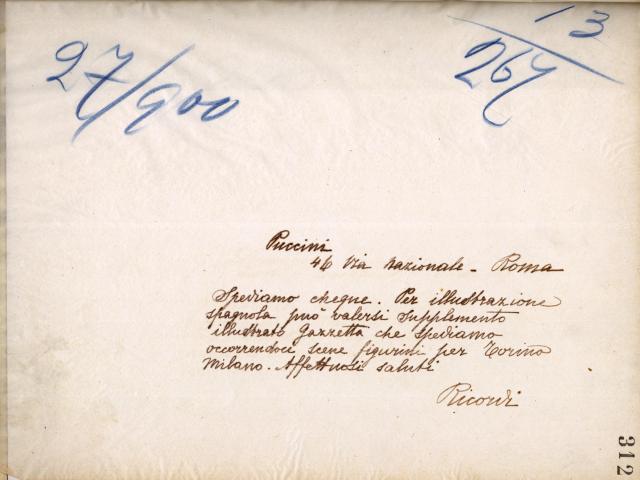 27/900
13
267
Puccini
46 Via Nazionale - Roma
Spediamo cheque. Per illustrazione
spagnola può valersi Supplemento
illustrato Gazzetta che spediamo
occorrendoci scene figurini per Torino
Milano. Affettuosi saluti
Ricordi
312